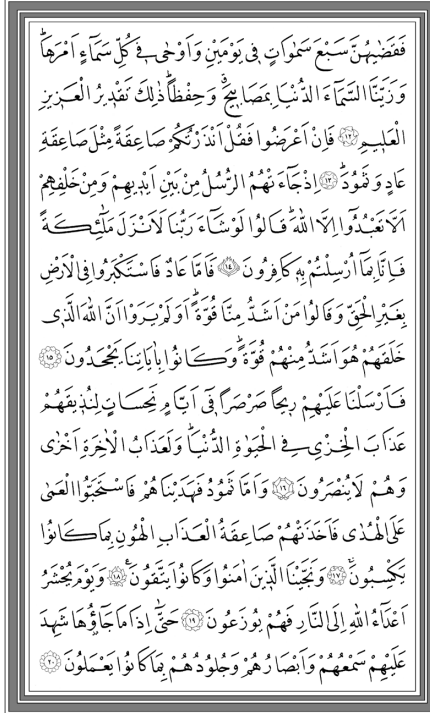 فَقَضٰيهُنَّ سَبْعَ سَمٰوَاتٍ فِى يَوْمَيْنِ وَاَوْحٰى فِى كُلِّ سَمَٓاءٍ اَمْرَهَاۜ
وَزَيَّنَّا السَّمَٓاءَ الدُّنْيَا بِمَصَابٖيحَۗ وَحِفْظًاۜ ذٰلِكَ تَقْدٖيرُ الْعَزٖيزِ
الْعَلٖيمِ ﴿١٢﴾ فَاِنْ اَعْرَضُوا فَقُلْ اَنْذَرْتُكُمْ صَاعِقَةً مِثْلَ صَاعِقَةِ
عَادٍ وَثَمُودَۜ ﴿١٣﴾ اِذْ جَٓاءَتْهُمُ الرُّسُلُ مِنْ بَيْنِ اَيْدٖيهِمْ وَمِنْ خَلْفِهِمْ
اَلَّا تَعْبُدُٓوا اِلَّا اللّٰهَۜ قَالُوا لَوْ شَٓاءَ رَبُّنَا لَاَنْزَلَ مَلٰٓئِكَةً
فَاِنَّا بِمَٓا اُرْسِلْتُمْ بِهٖ كَافِرُونَ ﴿١٤﴾ فَاَمَّا عَادٌ فَاسْتَكْبَرُوا فِى الْاَرْضِ
بِغَيْرِ الْحَقِّ وَقَالُوا مَنْ اَشَدُّ مِنَّا قُوَّةًۜ اَوَلَمْ يَرَوْا اَنَّ اللّٰهَ الَّذٖى
خَلَقَهُمْ هُوَ اَشَدُّ مِنْهُمْ قُوَّةًۜ وَكَانُوا بِاٰيَاتِنَا يَجْحَدُونَ ﴿١٥﴾
فَاَرْسَلْنَا عَلَيْهِمْ رٖيحًا صَرْصَرًا فٖٓى اَيَّامٍ نَحِسَاتٍ لِنُذٖيقَهُمْ
عَذَابَ الْخِزْىِ فِى الْحَيٰوةِ الدُّنْيَاۜ وَلَعَذَابُ الْاٰخِرَةِ اَخْزٰى
وَهُمْ لَا يُنْصَرُونَ ﴿١٦﴾ وَاَمَّا ثَمُودُ فَهَدَيْنَاهُمْ فَاسْتَحَبُّوا الْعَمٰى
عَلَى الْهُدٰى فَاَخَذَتْهُمْ صَاعِقَةُ الْعَذَابِ الْهُونِ بِمَا كَانُوا
يَكْسِبُونَۚ ﴿١٧﴾ وَنَجَّيْنَا الَّذٖينَ اٰمَنُوا وَكَانُوا يَتَّقُونَ۟ ﴿١٨﴾ وَيَوْمَ يُحْشَرُ
اَعْدَٓاءُ اللّٰهِ اِلَى النَّارِ فَهُمْ يُوزَعُونَ ﴿١٩﴾ حَتّٰٓى اِذَا مَا جَٓاؤُ۫هَا شَهِدَ
عَلَيْهِمْ سَمْعُهُمْ وَاَبْصَارُهُمْ وَجُلُودُهُمْ بِمَا كَانُوا يَعْمَلُونَ ﴿٢٠﴾